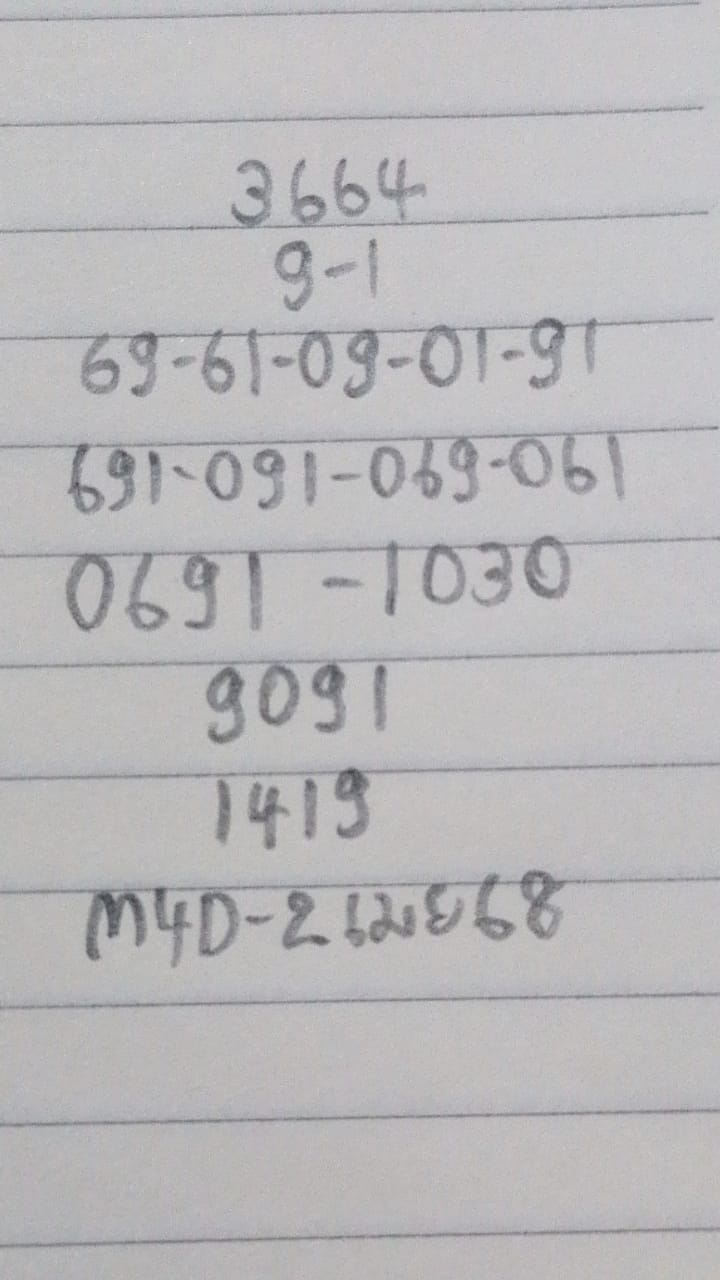 3664
9-1
69-61-09-01-91
691-091-069-061
0691 -1030
9091
1419
M4D-2เมย68